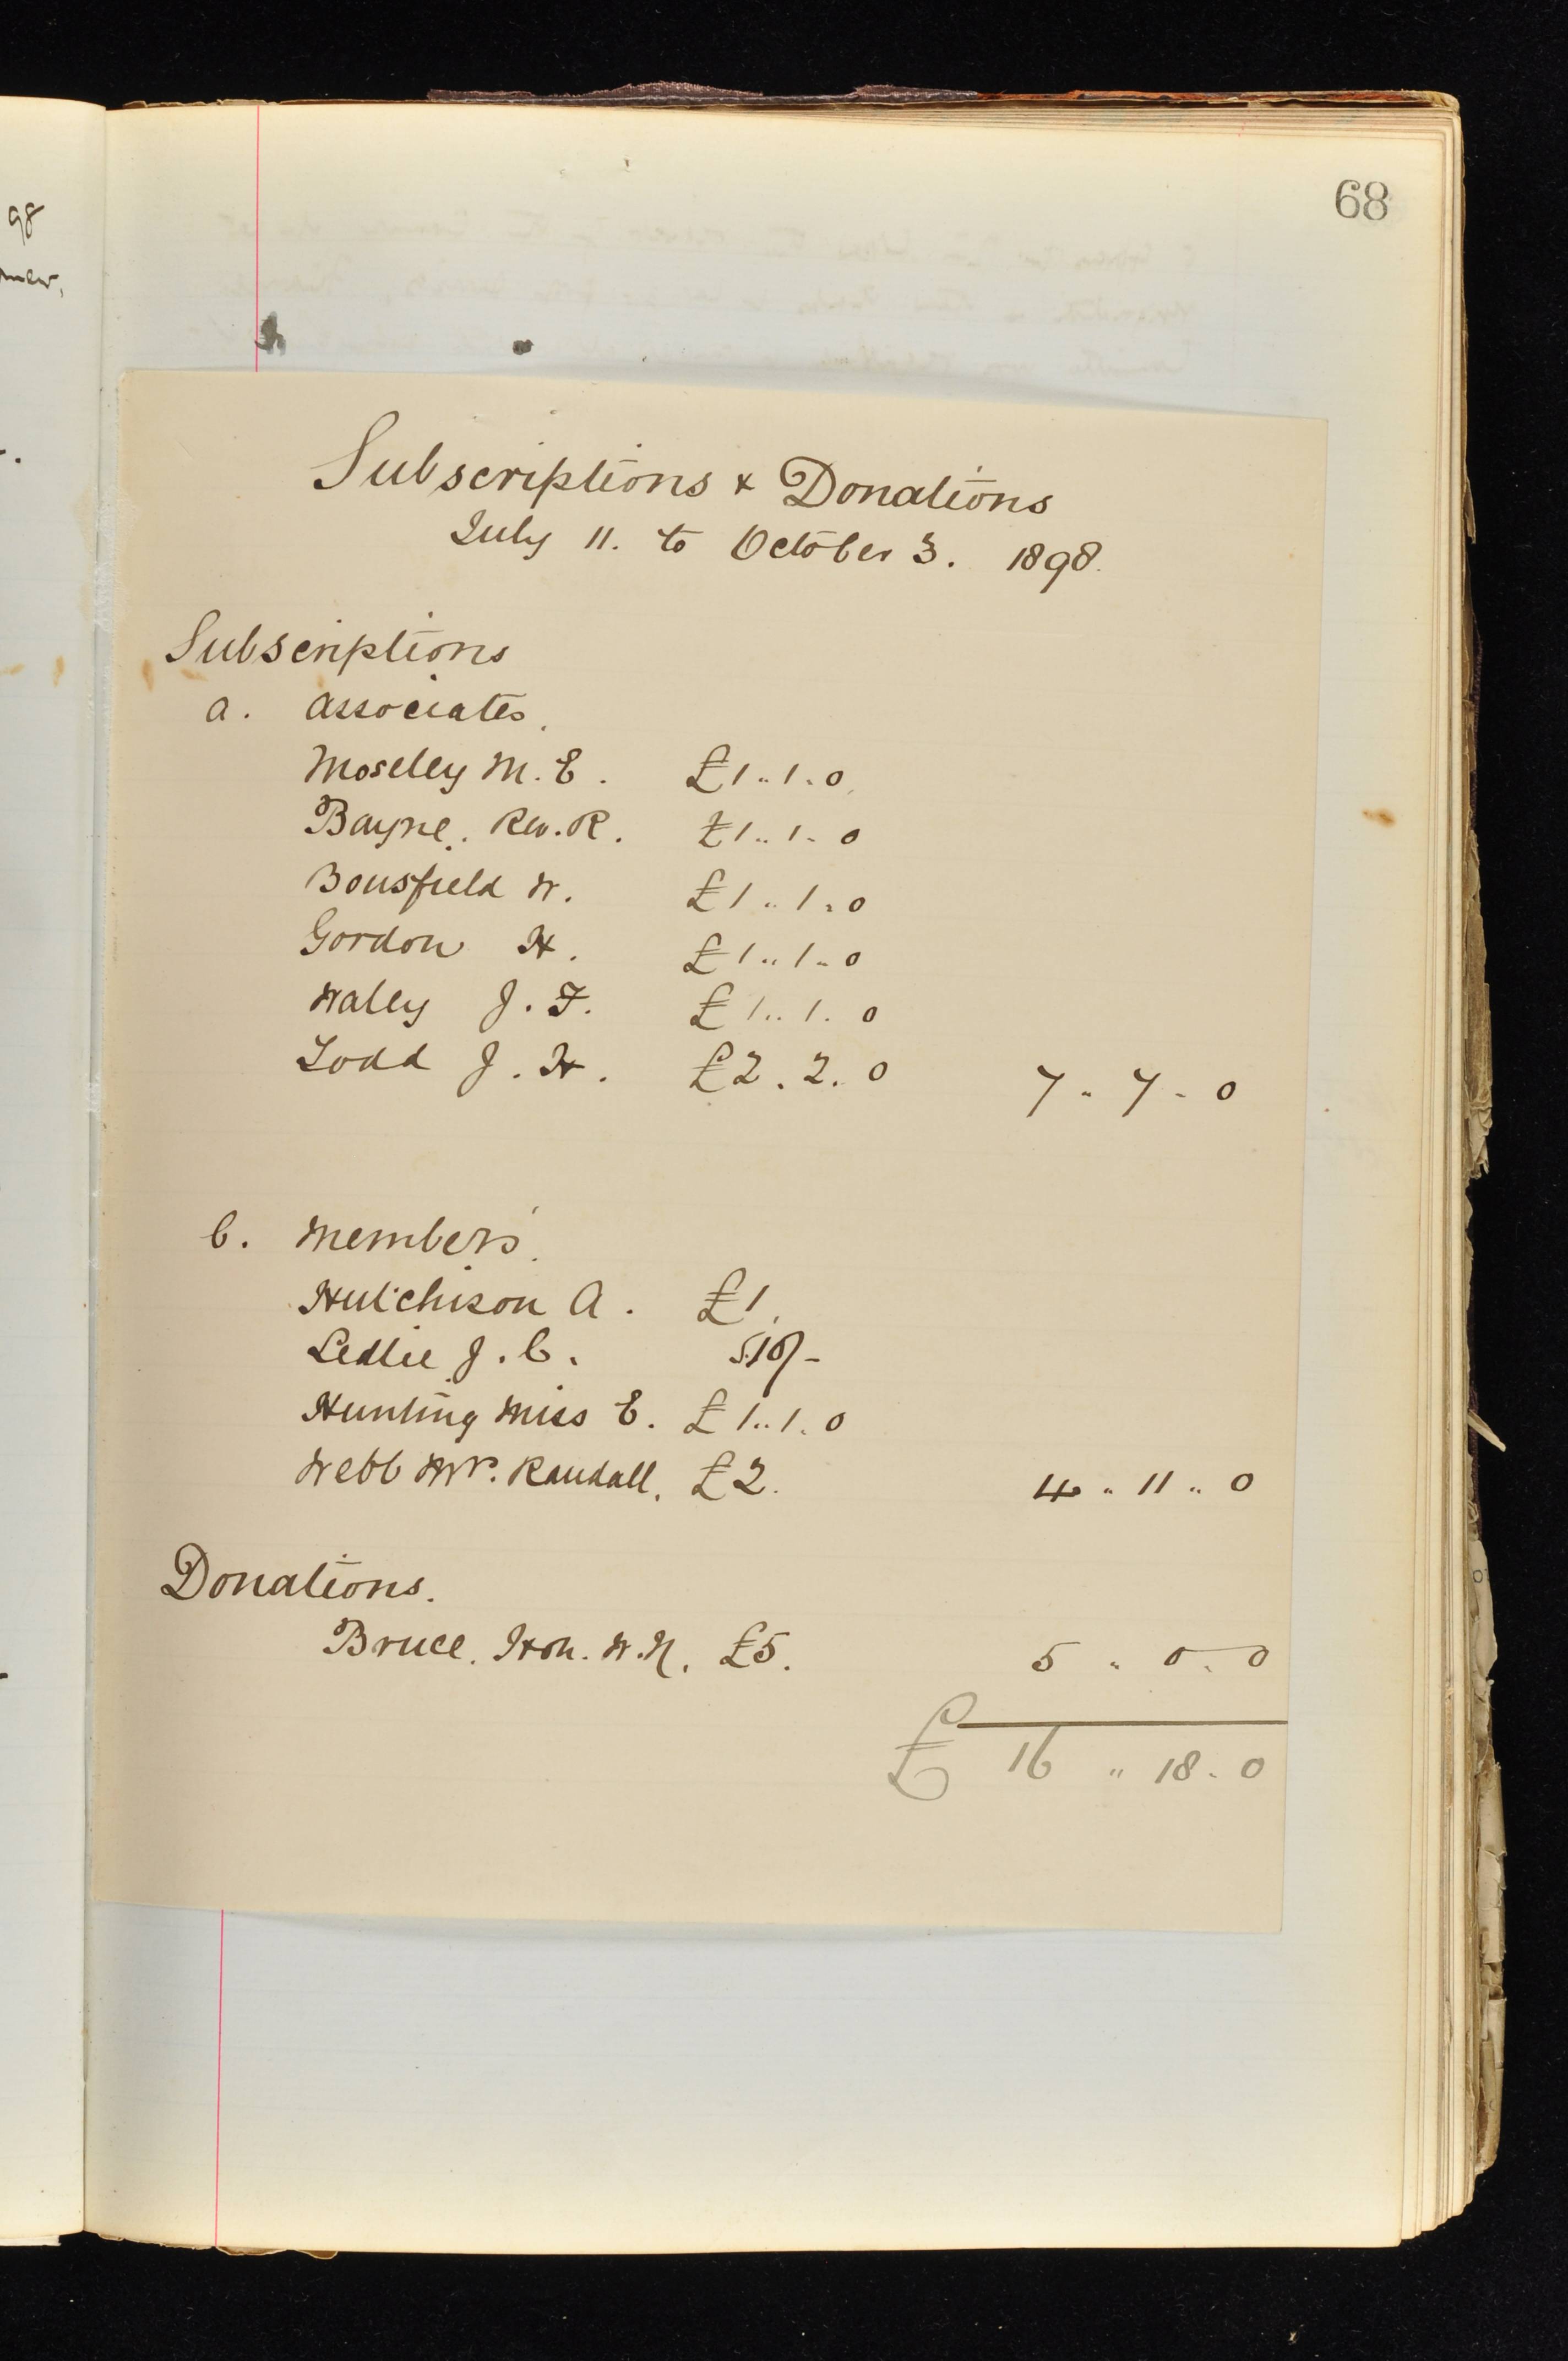 98
68
Subscriptions & Donations
July 11. to October 3. 1898.
Subscriptions
a. Associates.
Moseley M. E. £1..1.0
Bayne. Rev. R. £1..1-0
Bousfield W. £1..1.0
Gordon H. £1..1-0
Waley J. F. £1..1.0
Todd J. H. £2.2.0 7-7-0
b. Members.
Hutchison A. £1.
Ledlie J. C. 10/-
Hunting Miss E. £1..1.0
Webb Mr. Randall. £2. 4..11..0
Donations.
Bruce. Hon. W. N. £5. 5..0.0
£ 16..18-0